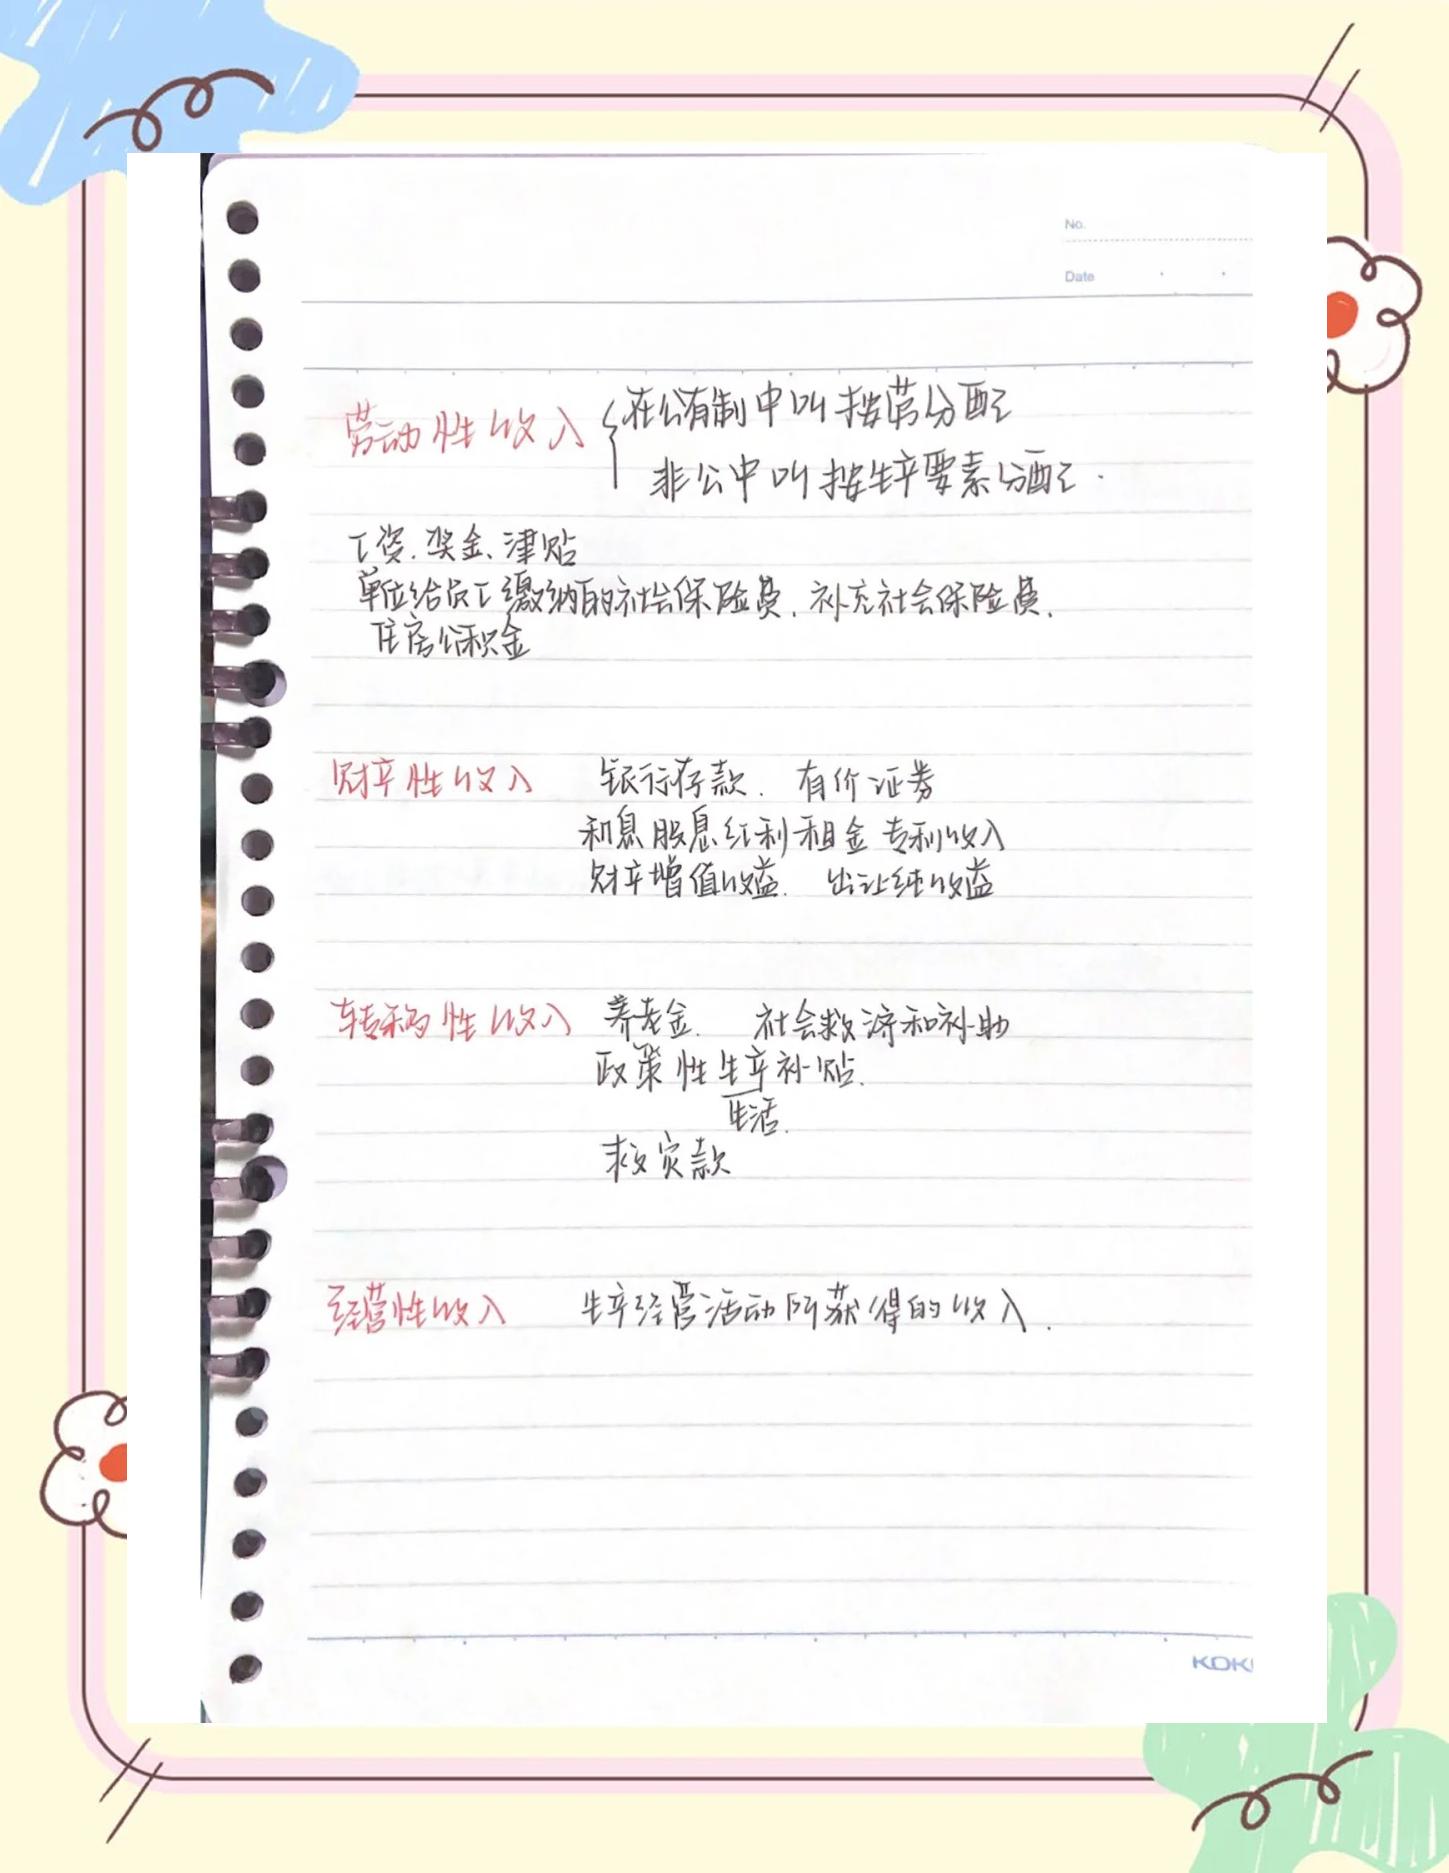 No.
Date
劳动性收入 { 在公有制中叫按劳分配
非公中叫按生产要素分配.
工资、奖金、津贴
单位给员工缴纳的社会保险费、补充社会保险费、
住房公积金
财产性收入 银行存款、有价证券
利息股息红利租金专利收入
财产增值收益、出让纯收益
转移性收入 养老金、社会救济和补助
政策性生产补贴.
生活.
救灾款
经营性收入 生产经营活动所获得的收入.